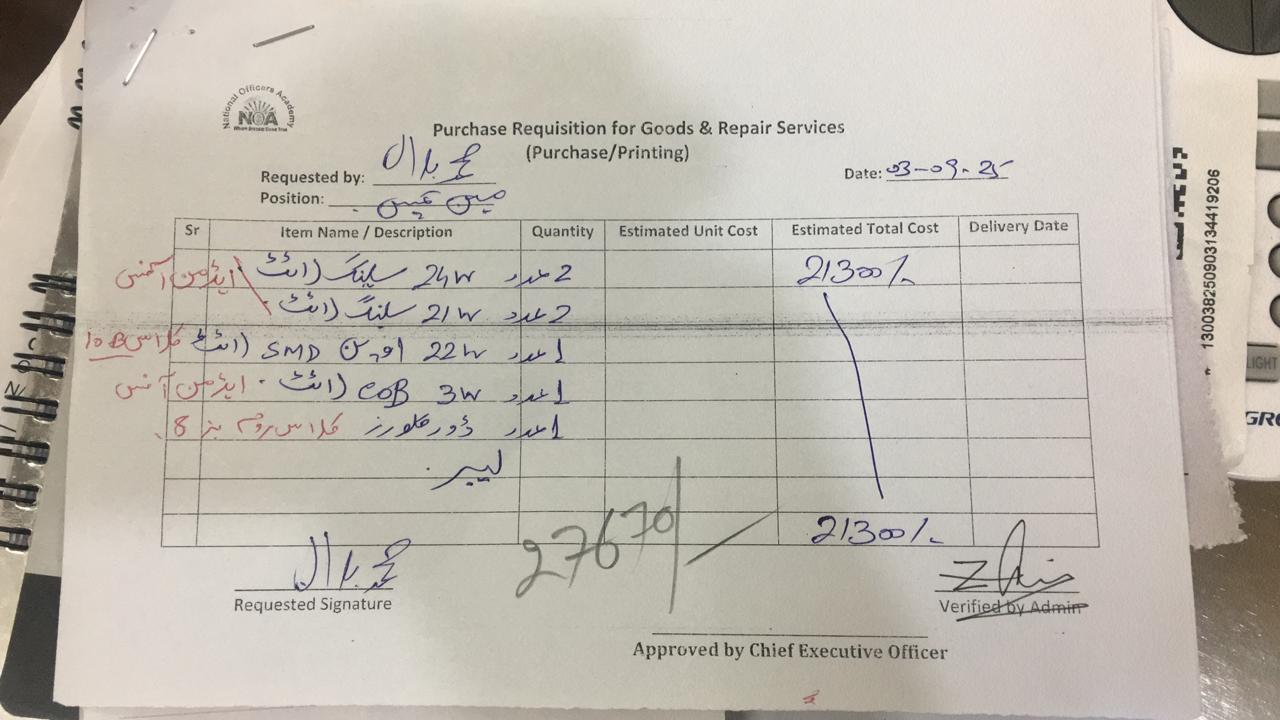 National Officers Academy
NOA
Purchase Requisition for Goods & Repair Services
(Purchase/Printing)
Requested by: محمد بلال
Position:
Date: 03-09-25
Sr Item Name / Description Quantity Estimated Unit Cost Estimated Total Cost Delivery Date
ایڈمن آفس 24W سیلنگ لائٹ 2 عدد 21300/-
21W سلنگ لائٹ 2 عدد
کلاس 10B 22W SMD لائٹ 1 عدد
ایڈمن آفس 3W COB لائٹ 1 عدد
کلاس روم نمبر 8 ڈور کلورز 1 عدد
لیبر
27670/
21300/-
محمد بلال
Requested Signature
Verified by Admin
Approved by Chief Executive Officer
130038250903134419206
LIGHT